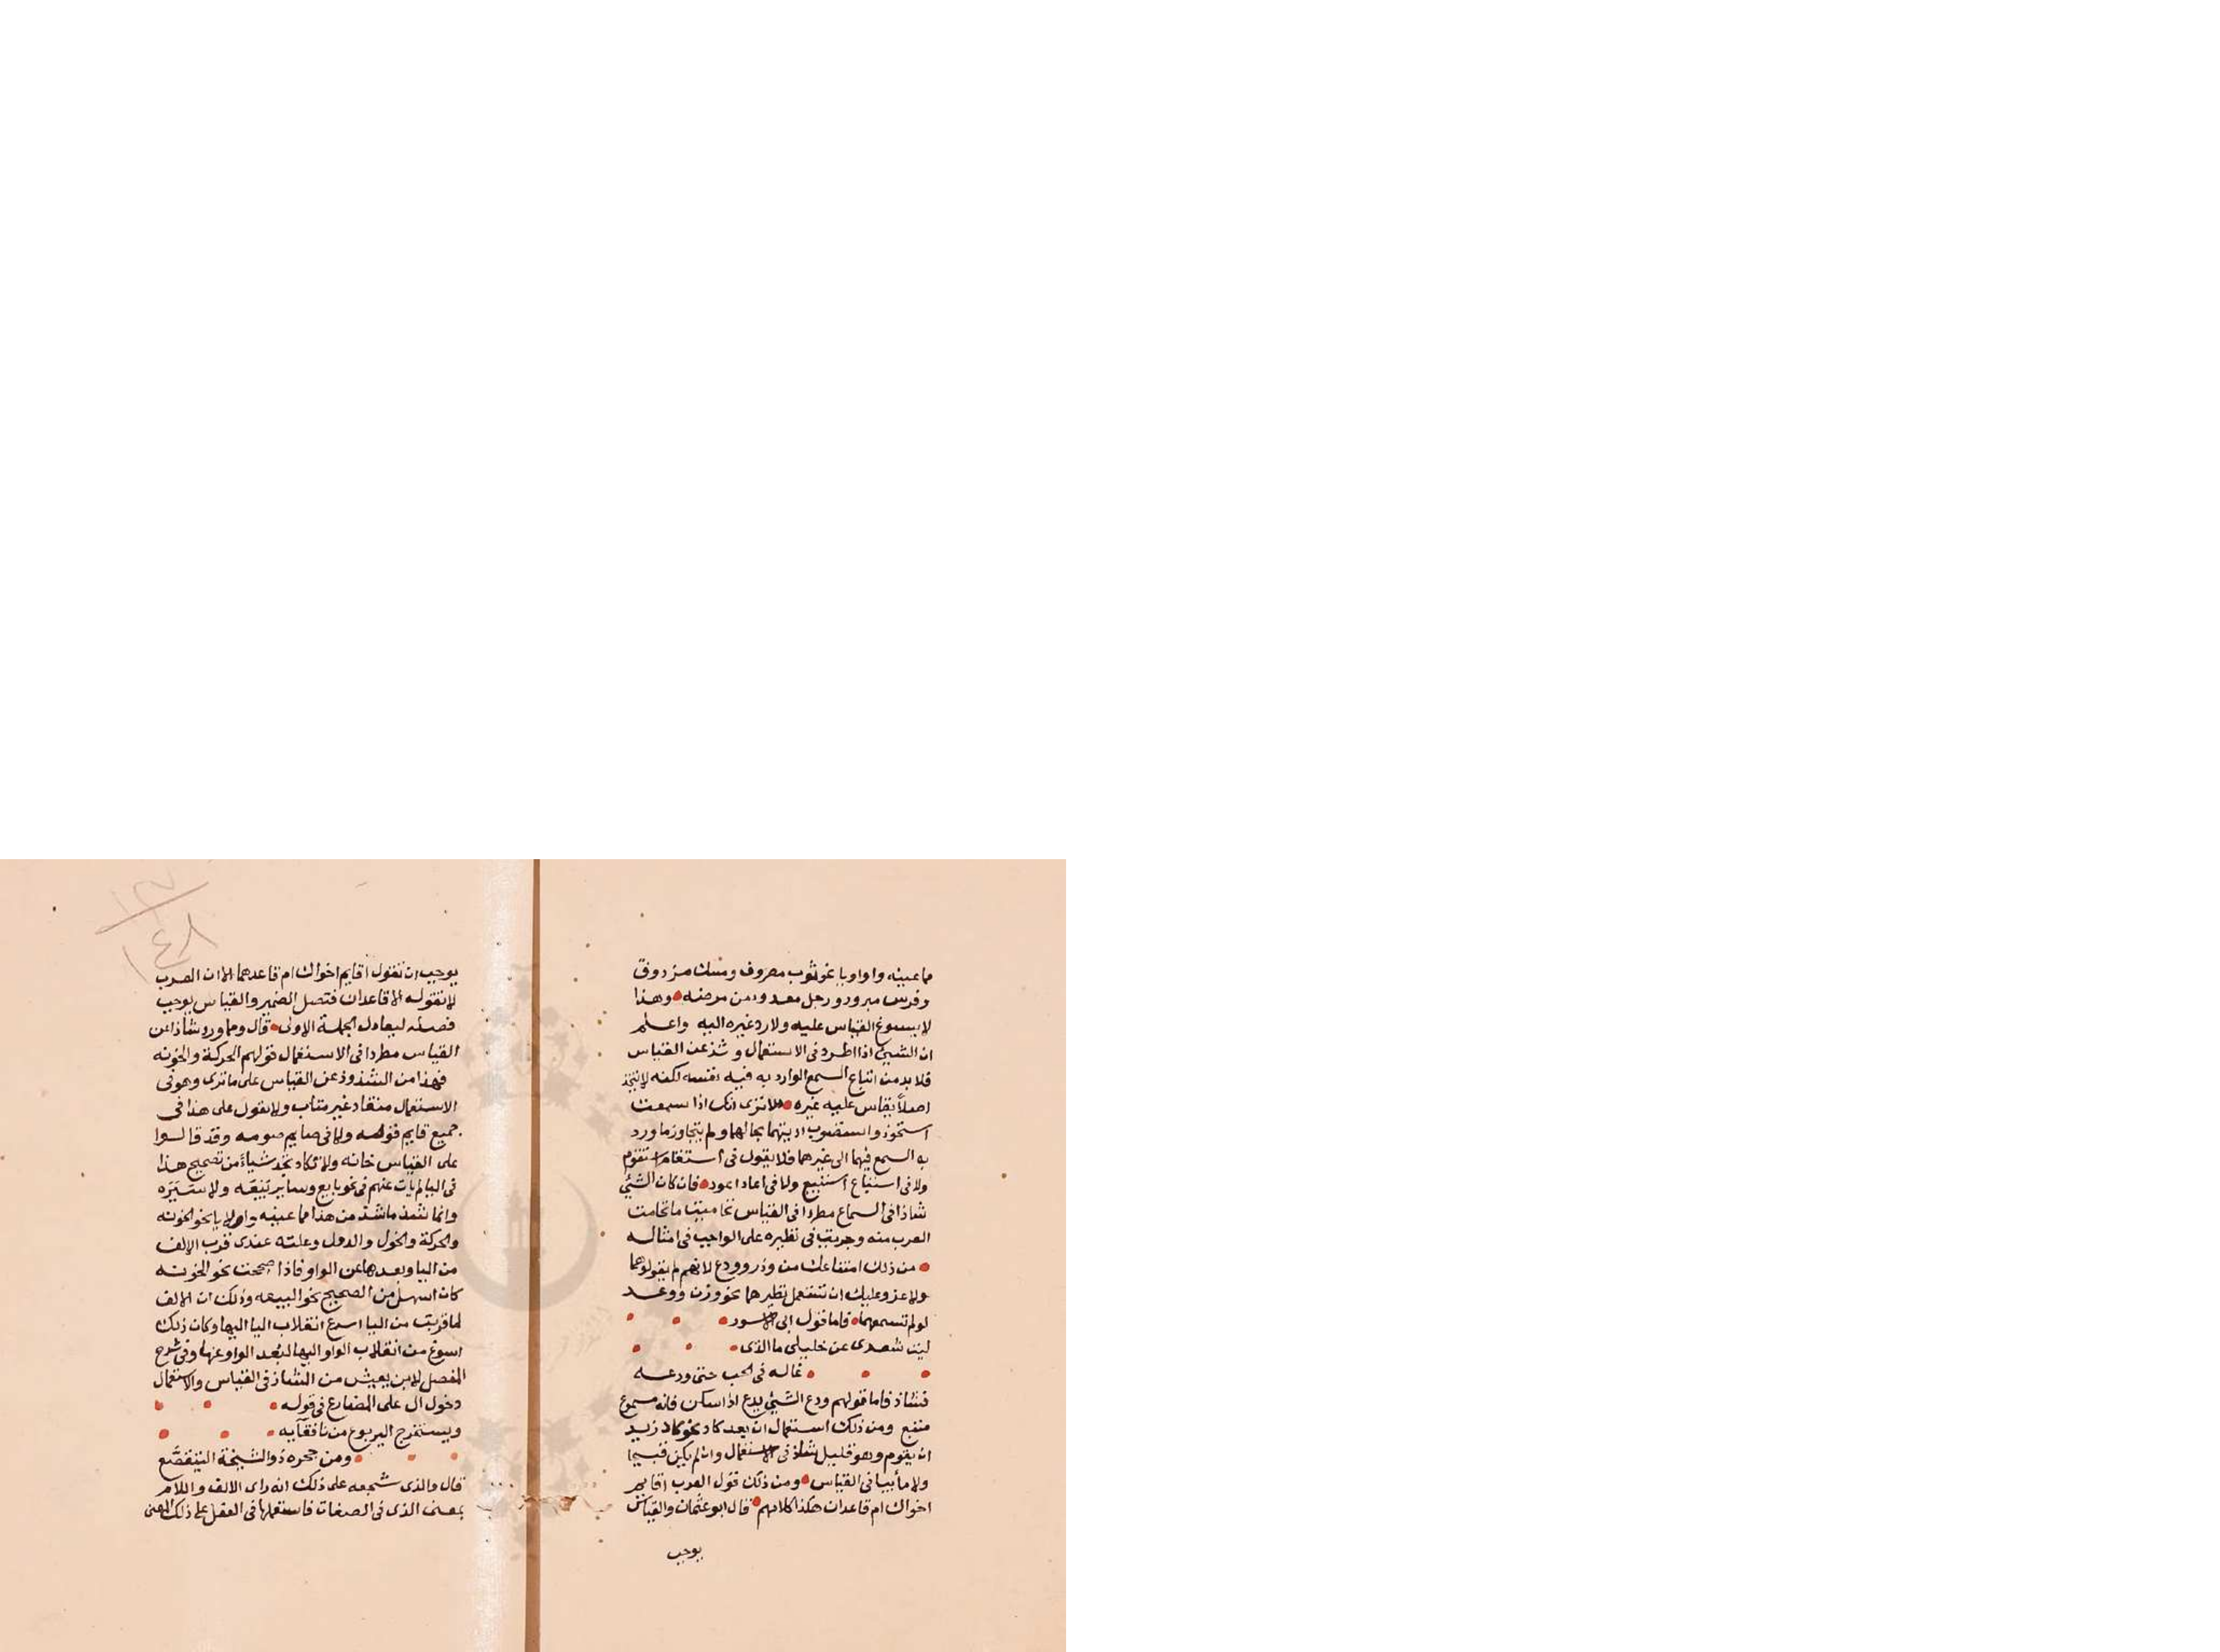 مما عينه واو او يا نحو ثوب مصووف ومسك مدووف
وفرس مقوود ورجل معوود من مرضه وهذا
لا يسوغ القياس عليه ولا رد غيره اليه واعلم
ان الشيئ اذا اطرد فى الاستعمال وشذ عن القياس
فلا بد من اتباع السمع الوارد به فيه نفسه لكنه لا يتخذ
اصلاً يقاس عليه غيره الا ترى انك اذا سمعت
استحوذ واستصوب اديتهما بحالهما ولم يتجاوز ما ورد
به السمع فيهما الى غيرهما فلا يقول فى استقام استقوم
ولا فى استباع استبيع ولا فى اعاد اعود فان كان الشئ
شاذا فى السماع مطردا فى القياس تحاميت ما تحامت
العرب منه وجريت فى نظيره على الواجب فى امثاله
من ذلك امتناعك من وذر وودع لانهم لم يقولوهما
ولا غرو عليك ان تستعمل نظيرهما نحو وزن ووعد
لو لم تسمعهما فاما قول ابى الاسود
ليت شعرى عن خليلى ما الذى
غاله فى الحب حتى ودعه
فشاذ فاما قولهم ودع الشئ يدع اذا سكن فانه مسموع
متبع ومن ذلك استعمال ان بعد كاد نحو كاد زيد
ان يقوم وهو قليل شاذ فى الاستعمال وان لم يكن قبيحا
ولا مأبيا فى القياس ومن ذلك قول العرب اقايم
اخواك ام قاعدان هكذا كلامهم قال ابو عثمان والقياس
يوجب
١٤٨
يوجب ان تقول اقايم اخواك ام قاعد هما الا ان العرب
لا تقوله الا قاعدان فتصل الضمير والقياس يوجب
فصله ليعادل الجملة الاولى قال ومما ورد شاذا عن
القياس مطردا فى الاستعمال قولهم الحوكة والخونه
فهذا من الشذوذ عن القياس على ما ترى وهو فى
الاستعمال منقاد غير متاب ولا تقول على هذا فى
جميع قايم قومه ولا فى صايم صومه وقد قالوا
على القياس خانه ولا تكاد تجد شياء من تصحيح هذا
فى اليا لم يات عنهم فى نحو بايع وساير بيعه ولا سيره
وانما شذ ما شذ من هذا مما عينه واو لا يا نحو الخونه
والحوكة والخول والدول وعلته عندى قرب الالف
من اليا وبعدها عن الواو فاذا صححت نحو الخونه
كان اسهل من الصحيح نحو البيعه وذلك ان الالف
لما قربت من اليا اسرع انقلاب اليا اليها وكان ذلك
اسوغ من انقلاب الواو اليها لبعد الواو عنها وفى شرح
المفصل لابن يعيش من الشاذ فى القياس والاستعمال
دخول ال على المضارع فى قوله
ويستخرج اليربوع من نافقآيه
ومن جحره ذو الشيخة اليتقصع
قال والذى شجعه على ذلك انه راى الالف واللام
بمعنى الذى فى الصفات فاستعملها فى الفعل على ذلك المعنى